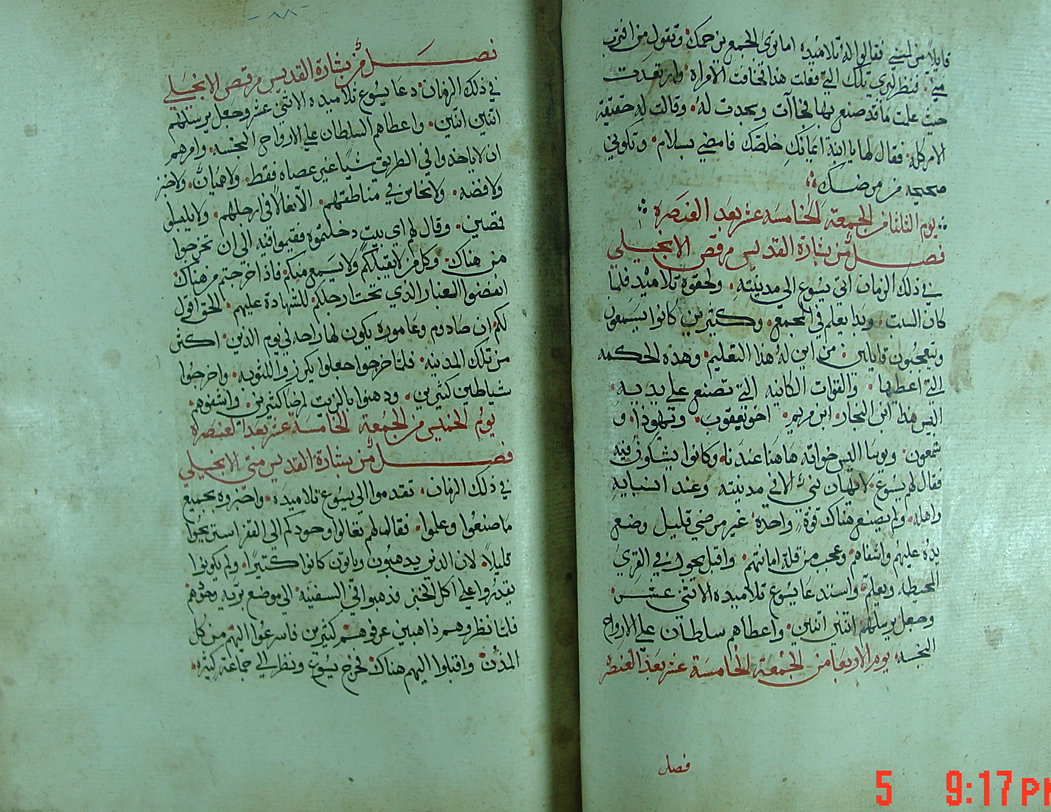 قايلا من لمسني فقالوا له تلاميذه اما ترى الجمع يزحمك وتقول من اقترب
مني فنظر ليرى تلك التي فعلت هذا فخافت الامراه وارتعدت
حيث علمت ما قد صنع بها فجاات وسجدت له وقالت له حقيقة
الامر كله فقال لها يا ابنة ايمانك خلصك فامضي بسلام وتكوني
صحيحه من مرضك
يوم الثلثا من الجمعه الخامسه عشر بعد العنصره
فصل من بشارة القديس مرقص الانجيلي
في ذلك الزمان اتى يسوع الى مدينته ولحقوه تلاميذه فلما
كان السبت وبدا يعلم في المجمع وكثيرين كانوا يسمعون
ويتعجبون قايلين من اين له هذا التعليم وهذه الحكمه
التي اعطيها والقوات الكاينه التي تصنع على يديه
اليس هذا ابن النجار ابن مريم اخو يعقوب ويهوذا و
شمعون ويوسا اليس خواته هاهنا عندنا وكانوا يشكون فيه
فقال لهم يسوع لا يهان نبي الا في مدينته وعند انسبايه
واهله ولم يصنع هناك قوة واحده غير مرضى قليل وضع
يده عليهم واشفاهم وعجب من قلة امانتهم واقبل يجول في القرى
المحيطه ويعلم واستدعا يسوع تلاميذه الاثنى عشر
وجعل يرسلهم اثنين اثنين واعطاهم سلطان على الارواح
النجسه يوم الاربعا من الجمعه الخامسة عشر بعد العنصره
فصل
٨٨
فصل من بشارة القديس مرقص الانجيلي
في ذلك الزمان دعا يسوع تلاميذه الاثنى عشر وجعل يرسلهم
اثنين اثنين واعطاهم السلطان على الارواح النجسه وامرهم
ان لا ياخذوا في الطريق شيا غير عصاه فقط ولا هميان ولا خبز
ولا فضه ولا نحاس في مناطقهم الا نعالا في ارجلهم ولا يلبسوا
قمصين وقال لهم اي بيت دخلتموه فقيموا فيه الى ان تخرجوا
من هناك وكل من لا يقبلكم ولا يسمع منكم فاذا خرجتم من هناك
انفضوا الغبار الذي تحت ارجلكم للشهادة عليهم الحق اقول
لكم ان صادوم وعاموره يكون لها راحه في يوم الدين اكثر
من تلك المدينه فلما خرجوا جعلوا يكرزوا للتوبه واخرجوا
شياطين كثيرين ودهنوا بالزيت مرضا كثيرين واشفوهم
يوم الخميس من الجمعه الخامسة عشر بعد العنصره
فصل من بشارة القديس متى الانجيلي
في ذلك الزمان تقدموا الى يسوع تلاميذه واخبروه بجميع
ما صنعوا وعلموا فقال لهم تعالوا وحدكم الى القفر استريحوا
قليلا لان الذين يذهبون وياتون كانوا كثيرا ولم يكونوا
يقدروا على اكل الخبز فذهبوا في السفينه الى موضع بريه وحدهم
فلما نظروهم ذاهبين عرفوهم كثيرين فاسرعوا اليهم من كل
المدن واقبلوا اليهم هناك فخرج يسوع ونظر الى جماعة كثيره
5 9:17 PM